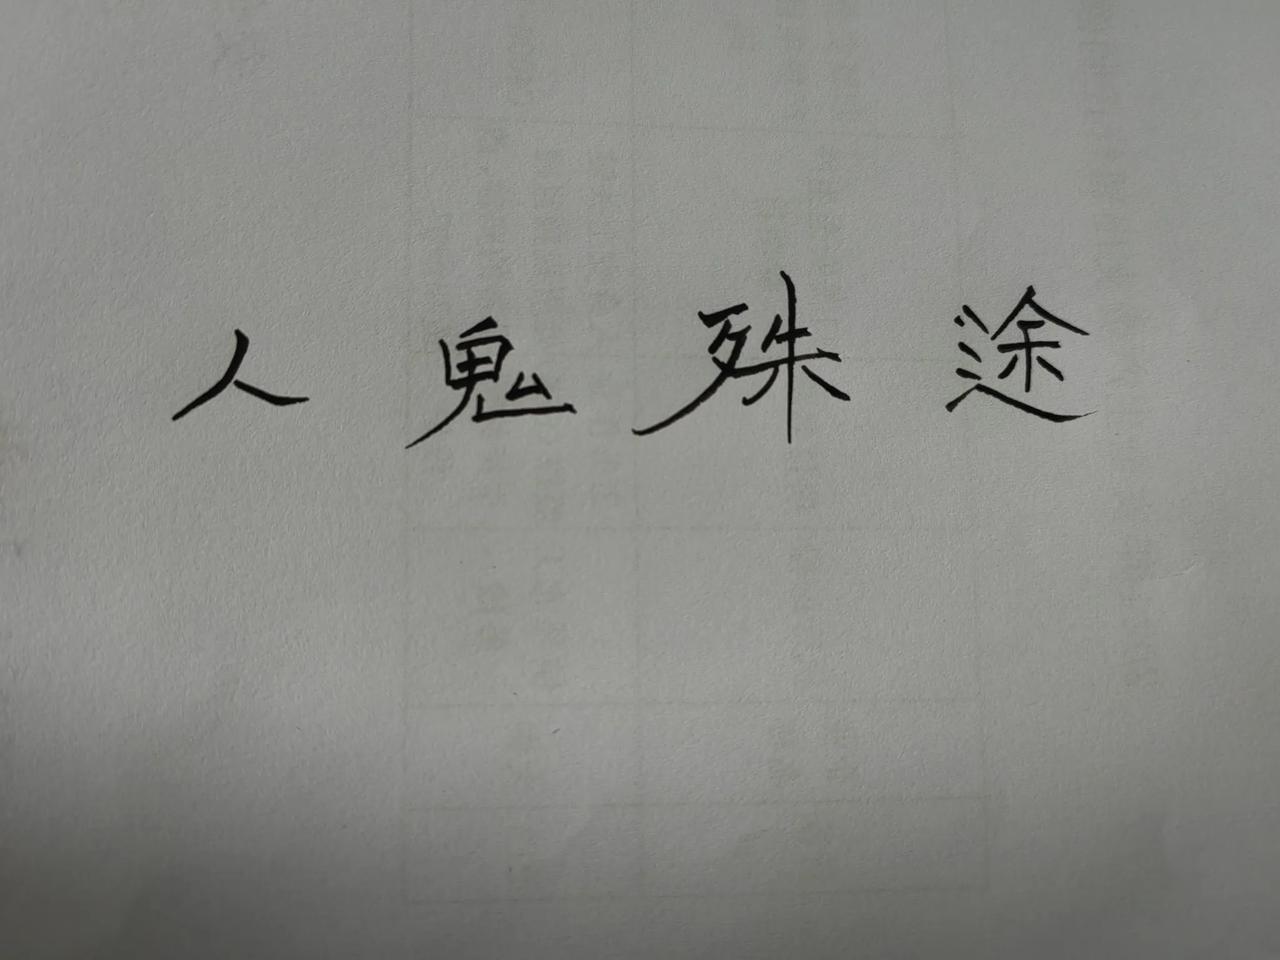 人鬼殊途